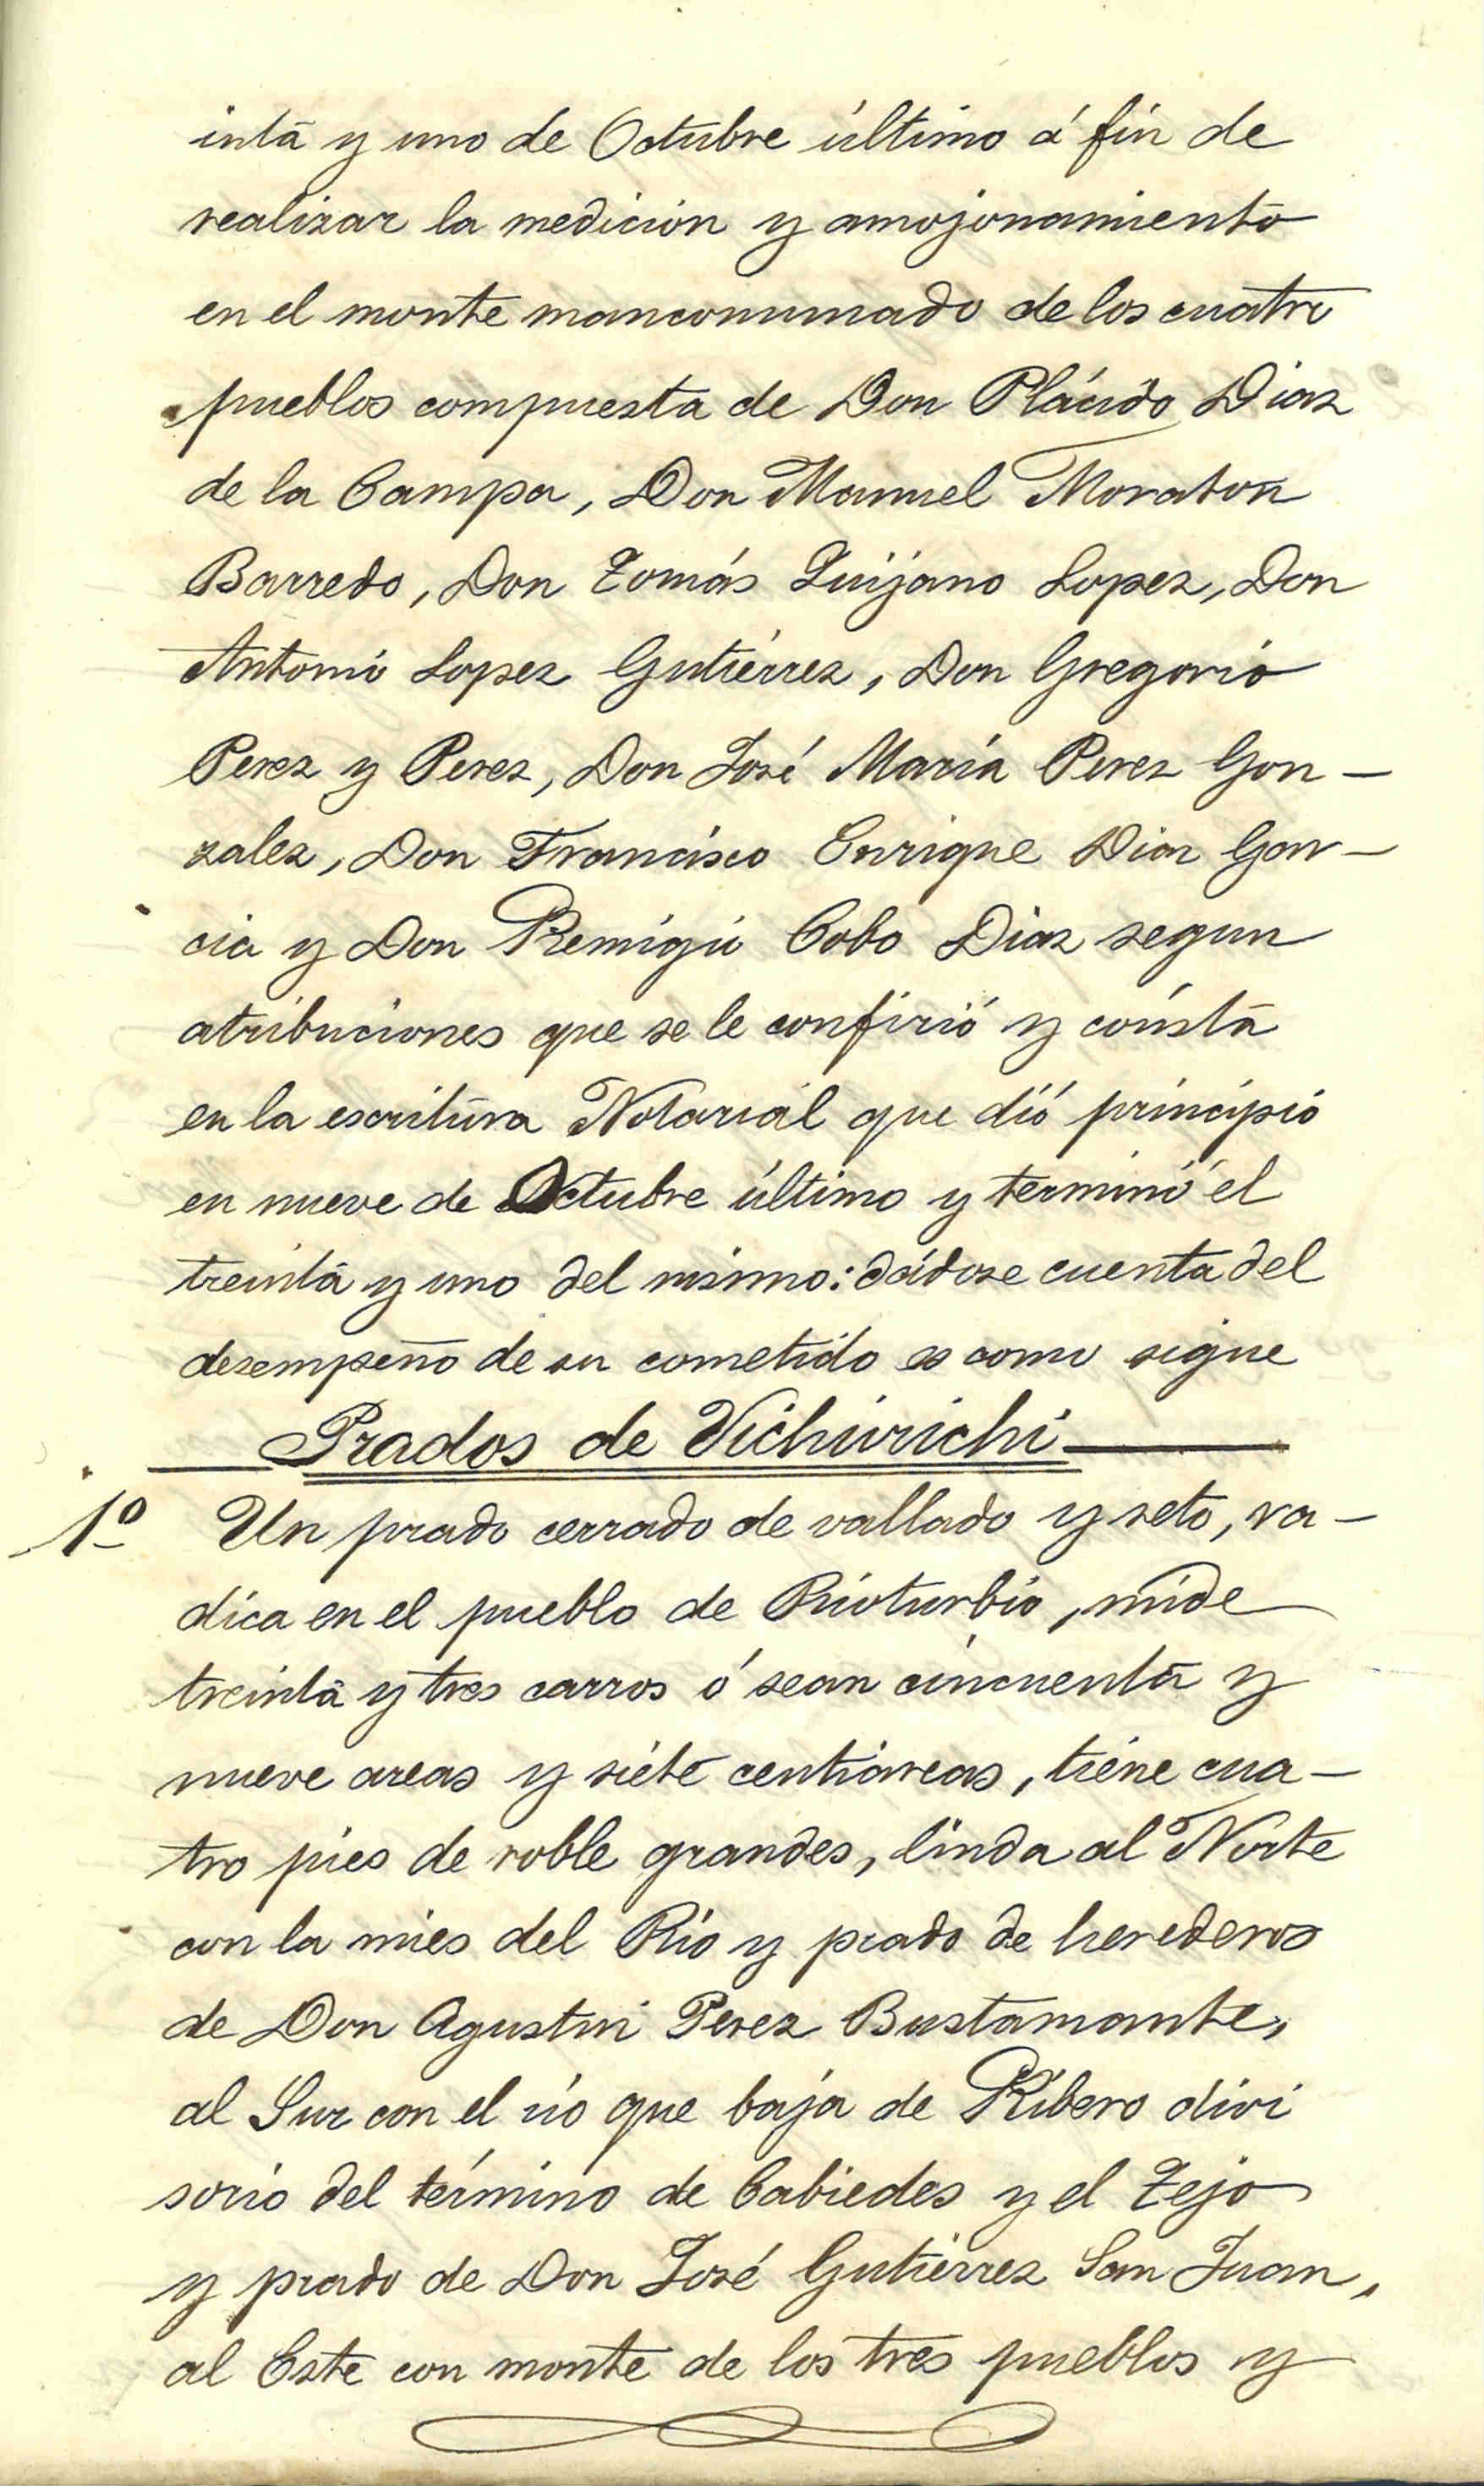 inta y uno de Octubre último á fin de
realizar la medición y amojonamiento
en el monte mancomunado de los cuatro
pueblos compuesta de Don Plácido Diaz
de la Campa, Don Manuel Moraton
Barredo, Don Tomás Quijano Lopez, Don
Antonio Lopez Gutiérrez, Don Gregorio
Perez y Perez, Don José María Perez Gon-
zalez, Don Francisco Enrique Diaz Gar-
cia y Don Remigio Cobo Diaz segun
atribuciones que se le confirió y consta
en la escritura Notarial que dió principio
en nueve de Octubre último y terminó el
treinta y uno del mismo: dádose cuenta del
desempeño de su cometido es como sigue
Prados de Vichirichi
1º Un prado cerrado de vallado y seto, ra-
dica en el pueblo de Rioturbio, mide
treinta y tres carros ó sean cincuenta y
nueve areas y siete centiareas, tiene cua-
tro pies de roble grandes, linda al Norte
con la mies del Rio y prado de herederos
de Don Agustin Perez Bustamante,
al Sur con el rio que baja de Ribero divi
sorio del término de Cabiedes y el Tejo
y prado de Don José Gutiérrez San Juan,
al Este con monte de los tres pueblos y